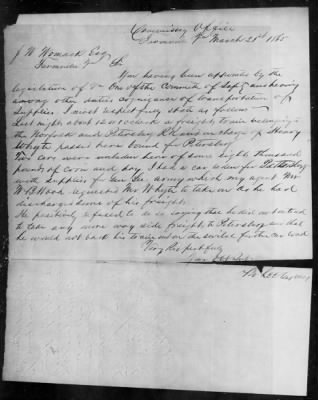 Commissary Office
Farmville Va March 21st 1865
J W Womack Esq
Farmville Va
Sir
You having been appointed by the
legislature of Va One of the Committee of Safety and having
among other duties cognizance of transportation of
Supplies I most respectfully state as follows
Last night about 10 o'clock a freight train belonging to
the Norfolk and Petersburg RR and in charge of Henry
Whyte passed here bound for Petersburg
Two cars were unladen here of some eight thousand
pounds of corn and hay I had a car laden for Petersburg
with supplies for Genl Lee army which my agent Mr
W B Wood requested Mr Whyte to take on as he had
discharged some of his freight
He positively refused to do so saying that he did not intend
to take any more way side freight to Petersburg and that
he would not back his train out on the switch for the car load
Very Respectfully